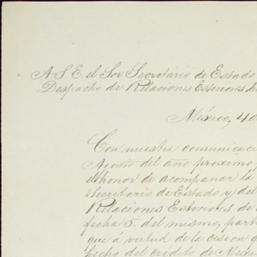 A S. E. el Sor Secretario de Estado
Despacho de Relaciones Esteriores
México, 4
Con nuestra comunicac
Agosto del año proximo
el honor de acompañar la
Secretario de Estado y del
Relaciones Esteriores de
fecha 5. del mismo, part
que á virtud de la cesion q
hecho del crédito de